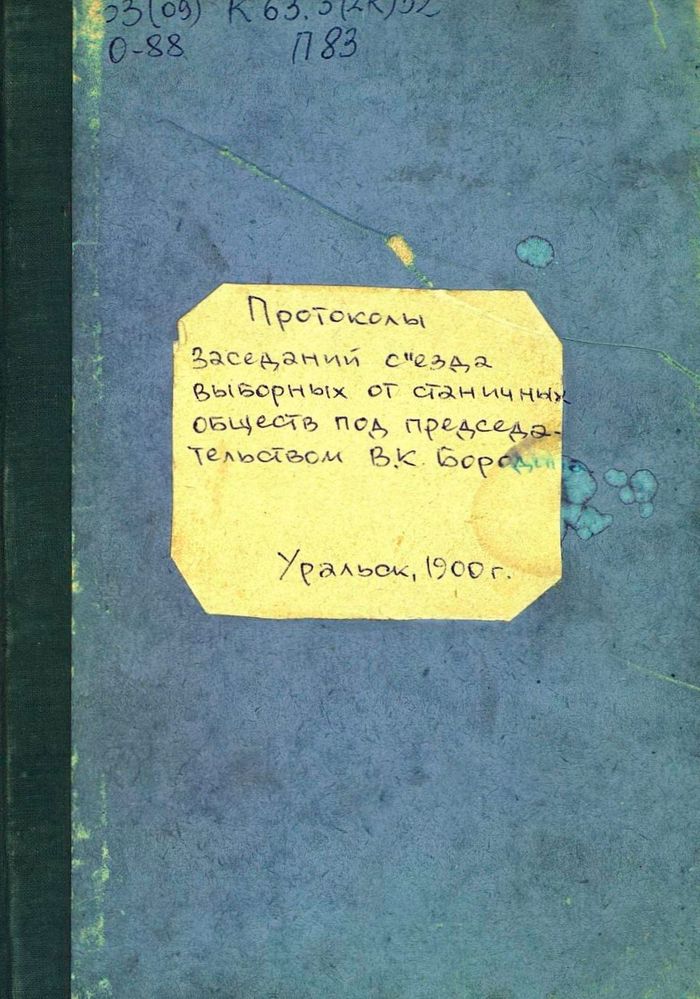 К 63.3(2К)52
0-88 П83
Протоколы
заседаний с"езда
выборных от станичных
обществ под председа-
тельством В.К.
Уральск, 1900 г.